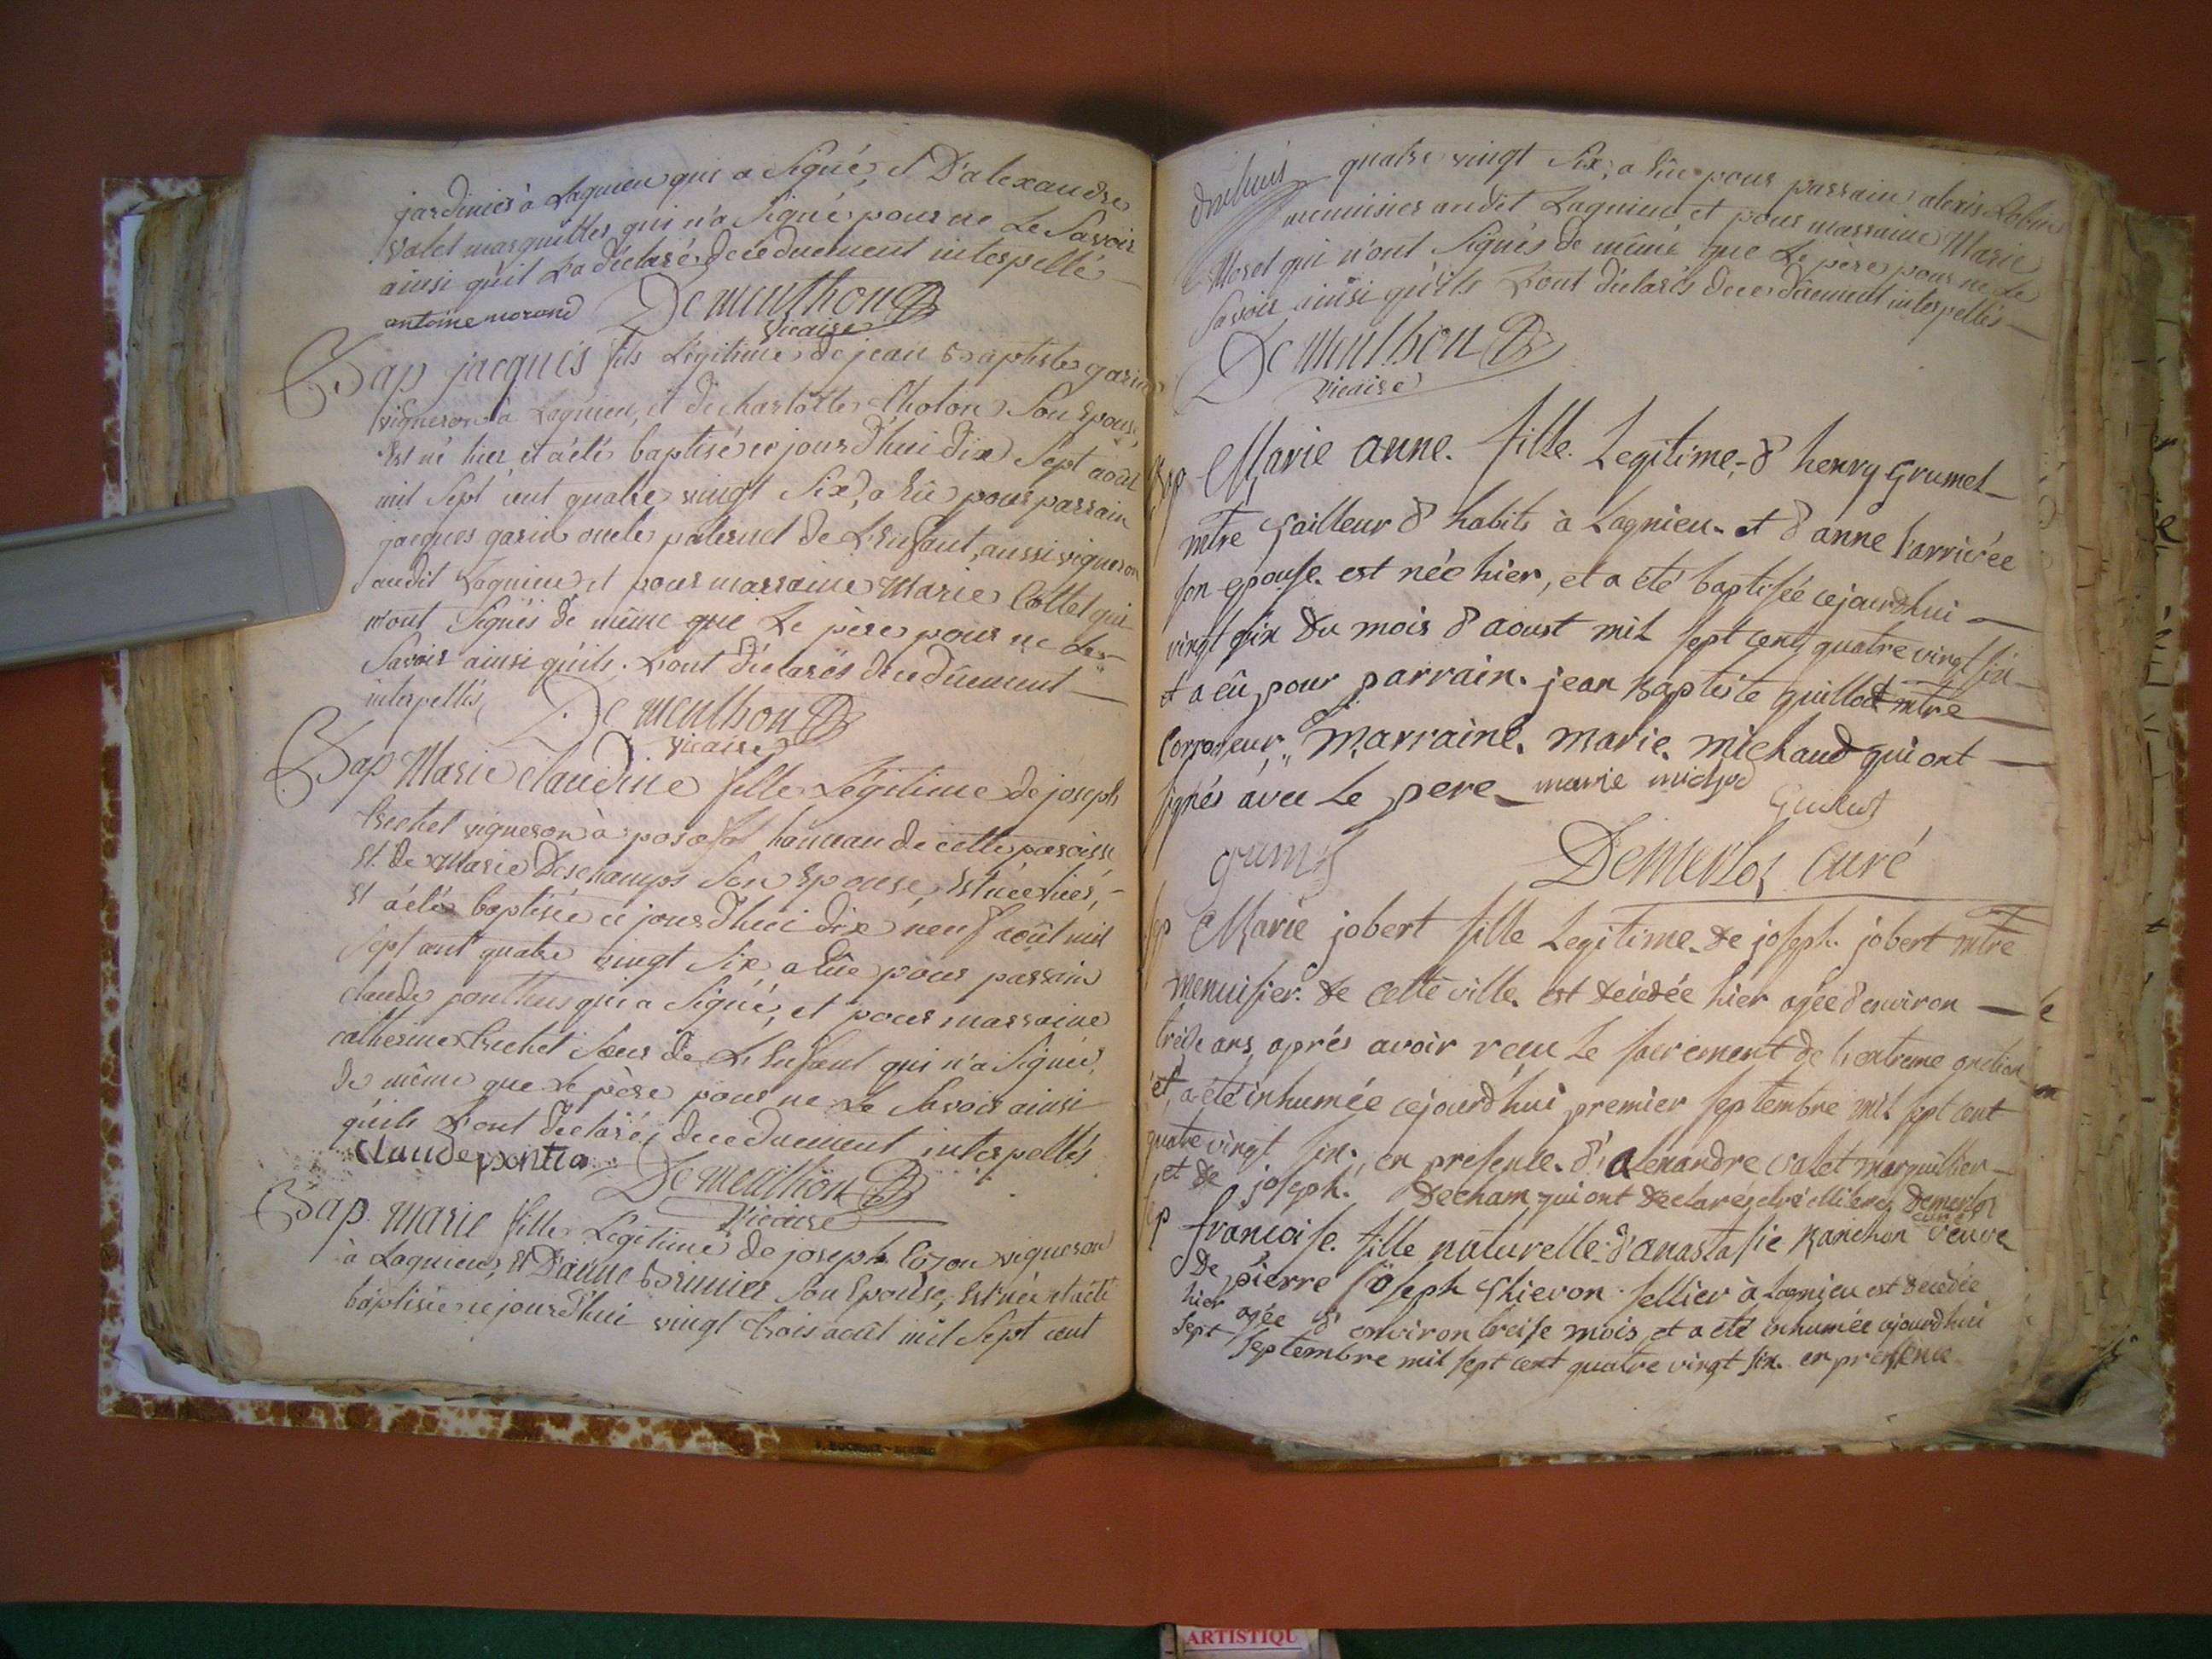 jardinier à Lagnieu qui a signé, et D'alexandre
Valet marguillier qui n'a signé pour ne Le Savoir
ainsi qu'il L'a déclaré de ce duement interpellé
antoine morand Dementhon
Vicaire
Bap jacques fils Légitime de jean Baptiste garin
vigneron à Lagnieu, et de charlotte Cholon Son Epouse,
Est né hier et a été baptisé ce jourd'hui dix Sept août
mil Sept cent quatre vingt Six, a Eû pour parrain
jacques garin oncle paternel de L'Enfant, aussi vigneron
audit Lagnieu, et pour marraine Marie Collet qui
n'ont Signés de même que Le père pour ne Le
Savoir ainsi qu'ils L'ont déclarés de ce dûement
interpellés Dementhon
vicaire
Bap Marie claudine fille Légitime de joseph
trichet vigneron à posafol hameau de cette paroisse
Et de Marie Deschamps Son Epouse, Est née hier,
Et a été baptisée ce jourd'hui dix neuf août mil
Sept cent quatre vingt Six, a Eûe pour parrain
claude ponthus qui a Signé, et pour marraine
catherine trichet Sœur de L'Enfant qui n'a Signée,
de même que Le père pour ne Le Savoir ainsi
qu'ils L'ont déclaré, de ce duement interpellés
Claude pontia Dementhon
Vicaire
Bap. Marie fille Légitime de joseph Cozon vigneron
à Lagnieu, Et D'anne Brunier Son Epouse, Est née et a été
baptisée ce jourd'hui vingt trois août mil Sept cent
quatre vingt Six, a Eûe pour parrain alexis
menuisier audit Lagnieu et pour marraine Marie
Morel qui n'ont Signés de même que Le père pour ne Le
Savoir ainsi qu'ils L'ont déclarés de ce dûement interpellés
Dementhon
vicaire
Bap Marie anne. fille. Legitime, d' henry Grumet
mtre tailleur d' habits à Lagnieu. et d' anne l'arrivée
son epouse. est née hier, et a été baptisée cejourdhui
vingt six du mois d' aoust mil sept cent quatre vingt six
et a eû pour parrain. jean Baptiste guillot mtre
Corroyeur, marraine. marie. michaud qui ont
signés avec Le pere marie michod
Guillot
grumet Demerloz Curé
Sep Marie jobert fille Legitime de joseph. jobert mtre
menuisier. de cette ville. est décédée hier agée d'environ
treize ans, aprés avoir reçu Le sacrement de l'extreme onction
et, a été inhumée cejourd'hui premier septembre mil sept cent
quatre vingt six., en presence. d'alexandre valet marguillier
et de joseph. decham qui ont declaré, etre illiteres Demerloz
curé
Sep francoise. fille naturelle. d'anastasie Ranchon veuve
De pierre joseph Thievon. sellier à Lagnieu est décédée
hier agée d' environ treise mois, et a été inhumée cejourdhui
sept septembre mil sept cent quatre vingt six. en presence
ARTISTIQU